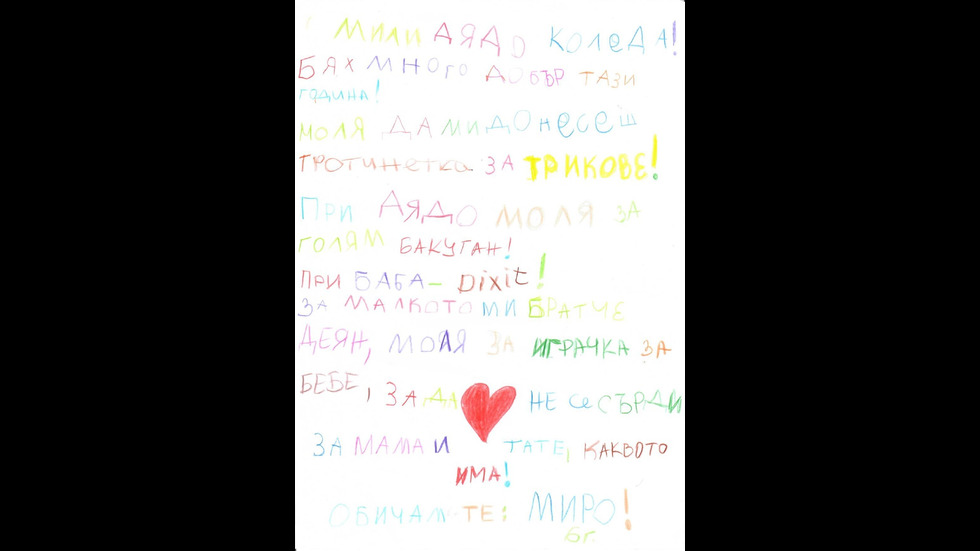 МИЛИ ДЯДО КОЛеДА!
БЯХ МНОГО ДОБЪР ТАЗИ
ГОДИНА!
МОЛЯ ДА МИ ДОНеСеШ
ТРОТИНеТКА ЗА ТРИКОВЕ!
ПРИ ДЯДО МОЛЯ ЗА
ГОЛЯМ БАКУГАН!
ПРИ БАБА– Dixit!
ЗА МАЛКОТО МИ БРАТЧЕ
ДЕЯН, МОЛЯ ЗА ИГРАЧКА ЗА
БЕБЕ, ЗА ДА НЕ Се СЪРДИ
ЗА МАМА И ТАТЕ, КАКВОТО
ИМА!
ОБИЧАМ ТЕ: МИРО!
6г.